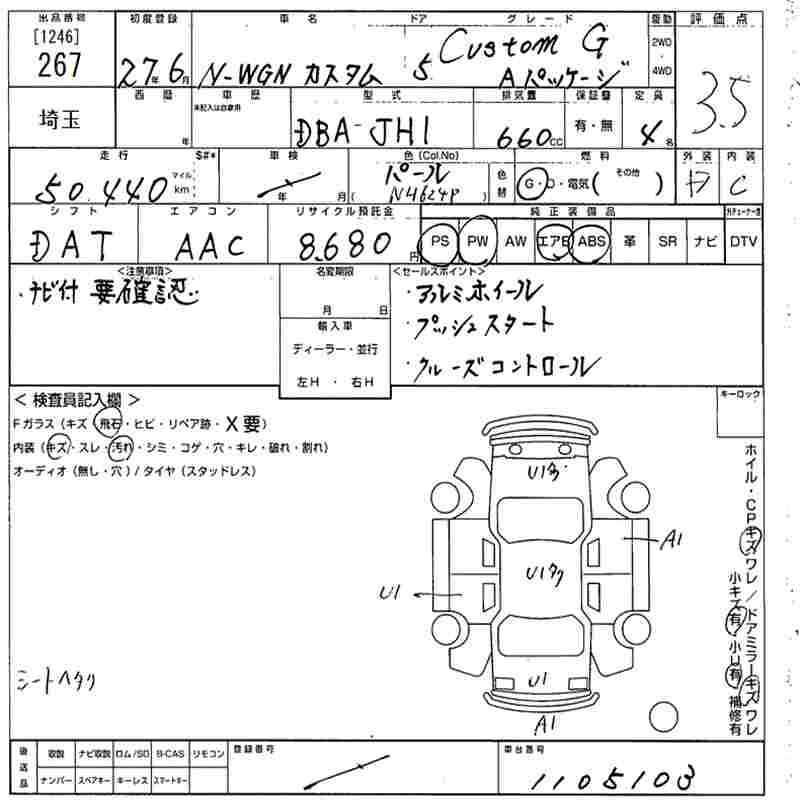 出品番号 初度登録 車名 ドア グレード 駆動 評価点
[1246]
267 27年6月 N-WGN カスタム 5 Custom G Aパッケージ 2WD・4WD 3.5
埼玉 西暦 年 車歴 未記入は自家用 型式 DBA-JH1 排気量 660cc 保証書 有・無 定員 4名
走行 S#* 車検 色(Col.No) 燃料 外装 内装
50,440 マイル km 年 月 パール NH624P 色替 G・D・電気( その他 ) C
シフト エアコン リサイクル預託金 純正装備品
DAT AAC 8,680円 PS PW AW エアB ABS 革 SR ナビ DTV
<注意事項> 名変期限 <セールスポイント>
・ナビ付 要確認 ・アルミホイール
月 日 ・プッシュスタート
輸入車
ディーラー・並行 ・クルーズコントロール
左H ・ 右H
< 検査員記入欄 > キーロック
Fガラス(キズ・飛石・ヒビ・リペア跡・X要)
内装(キズ・スレ・汚れ・シミ・コゲ・穴・キレ・破れ・割れ)
オーディオ(無し・穴)/タイヤ(スタッドレス)
ホイル・CPキズワレ/ドアミラーキズワレ
小キズ有・小U有・補修有
U1多
A1
U1多
U1
シートヘタリ
U1
A1
後送品 取説 ナビ取説 ロム/SD B-CAS リモコン 登録番号 車台番号
ナンバー スペアキー キーレス スマートキー 1105103